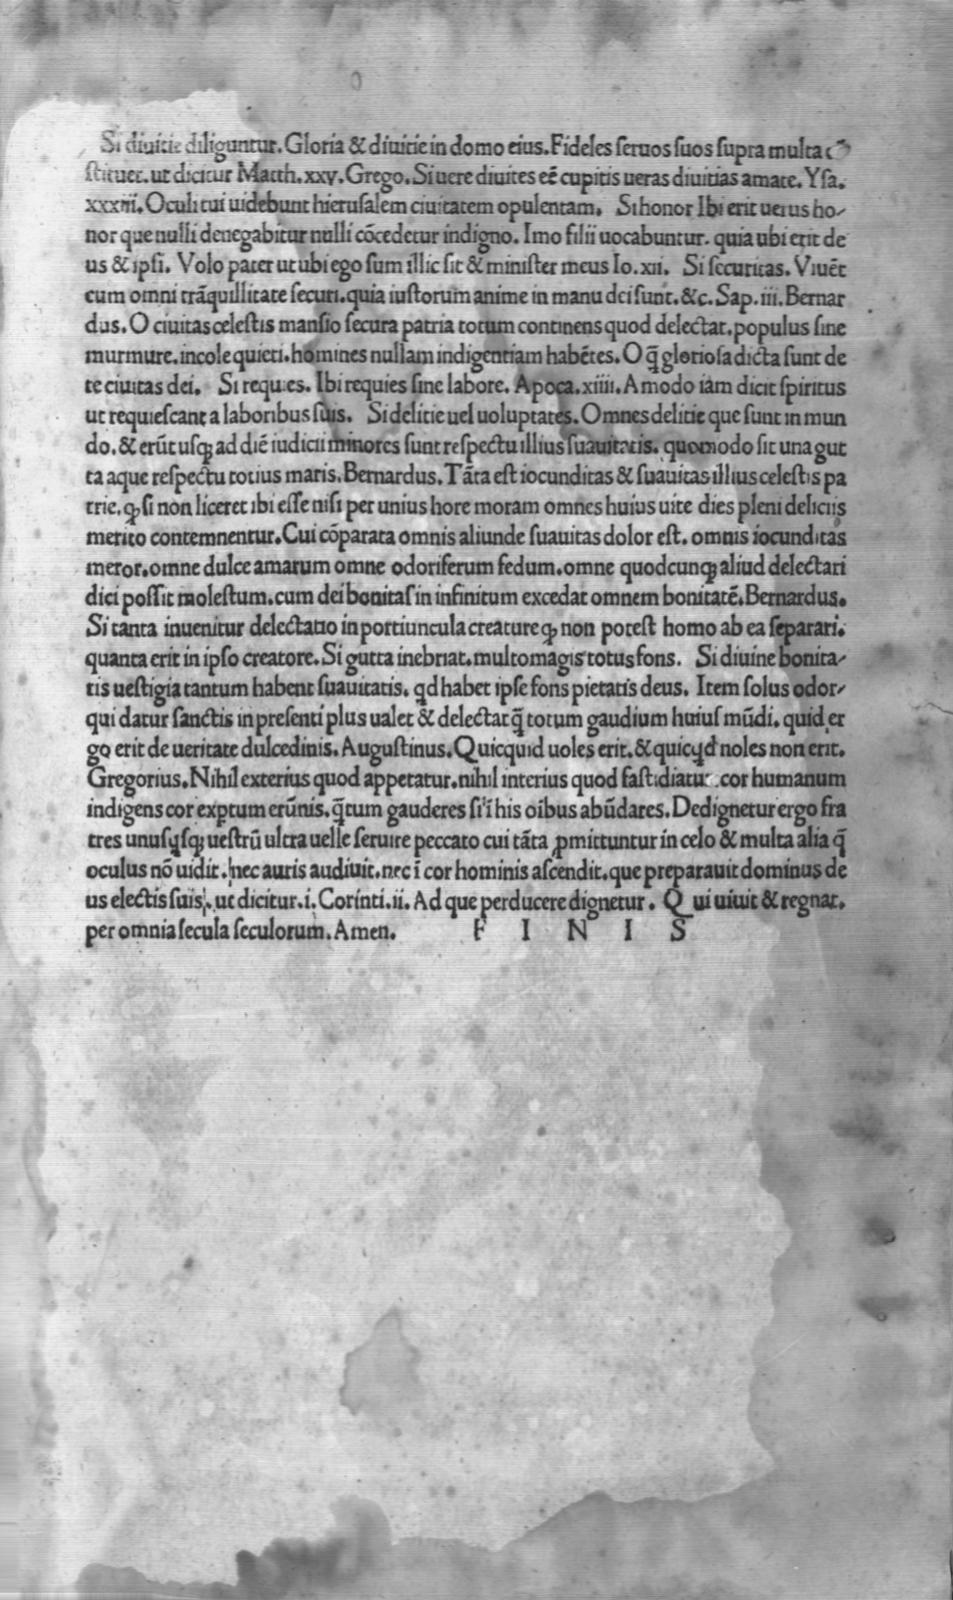 Si diuitie diliguntur. Gloria & diuitie in domo eius. Fideles seruos suos supra multa cō
stituet. ut dicitur Matth. xxv. Grego. Si uere diuites eē cupitis ueras diuitias amate. Ysa.
xxxiii. Oculi tui uidebunt hierusalem ciuitatem opulentam. Si honor Ibi erit uerus ho-
nor que nulli denegabitur nulli cōcedetur indigno. Imo filii uocabuntur. quia ubi erit de
us & ipsi. Volo pater ut ubi ego sum illic sit & minister meus Io. xii. Si securitas. Viuēt
cum omni trāquillitate securi. quia iustorum anime in manu dei sunt. &c. Sap. iii. Bernar
dus. O ciuitas celestis mansio secura patria totum continens quod delectat. populus sine
murmure. incole quieti. homines nullam indigentiam habētes. O q̄ gloriosa dicta sunt de
te ciuitas dei. Si requies. Ibi requies sine labore. Apoca. xiiii. Amodo iam dicit spiritus
ut requiescant a laboribus suis. Si delitie uel uoluptates. Omnes delitie que sunt in mun
do. & erūt usqꝫ ad diē iudicii minores sunt respectu illius suauitatis. quomodo sit una gut
ta aque respectu totius maris. Bernardus. Tāta est iocunditas & suauitas illius celestis pa
trie. ꝙ si non liceret ibi esse nisi per unius hore moram omnes huius uite dies pleni deliciis
merito contemnentur. Cui cōparata omnis aliunde suauitas dolor est. omnis iocunditas
meror. omne dulce amarum omne odoriferum fedum. omne quodcunqꝫ aliud delectari
dici possit molestum. cum dei bonitas in infinitum excedat omnem bonitatē. Bernardus.
Si tanta inuenitur delectatio in portiuncula creature ꝙ non potest homo ab ea separari.
quanta erit in ipso creatore. Si gutta inebriat. multomagis totus fons. Si diuine bonita-
tis uestigia tantum habent suauitatis. qd habet ipse fons pietatis deus. Item solus odor-
qui datur sanctis in presenti plus ualet & delectat q̄ totum gaudium huius mūdi. quid er
go erit de ueritate dulcedinis. Augustinus. Quicquid uoles erit. & quicqd noles non erit.
Gregorius. Nihil exterius quod appetatur. nihil interius quod fastidiatur cor humanum
indigens cor exptum erūnis. q̄tum gauderes si ī his oibus abūdares. Dedignetur ergo fra
tres unusqsqꝫ uestrū ultra uelle seruire peccato cui tāta ꝓmittuntur in celo & multa alia q̄
oculus nō uidit. nec auris audiuit. nec ī cor hominis ascendit. que preparauit dominus de
us electis suis. ut dicitur. i. Corinti. ii. Ad que perducere dignetur. Qui uiuit & regnat.
per omnia secula seculorum. Amen. F I N I S